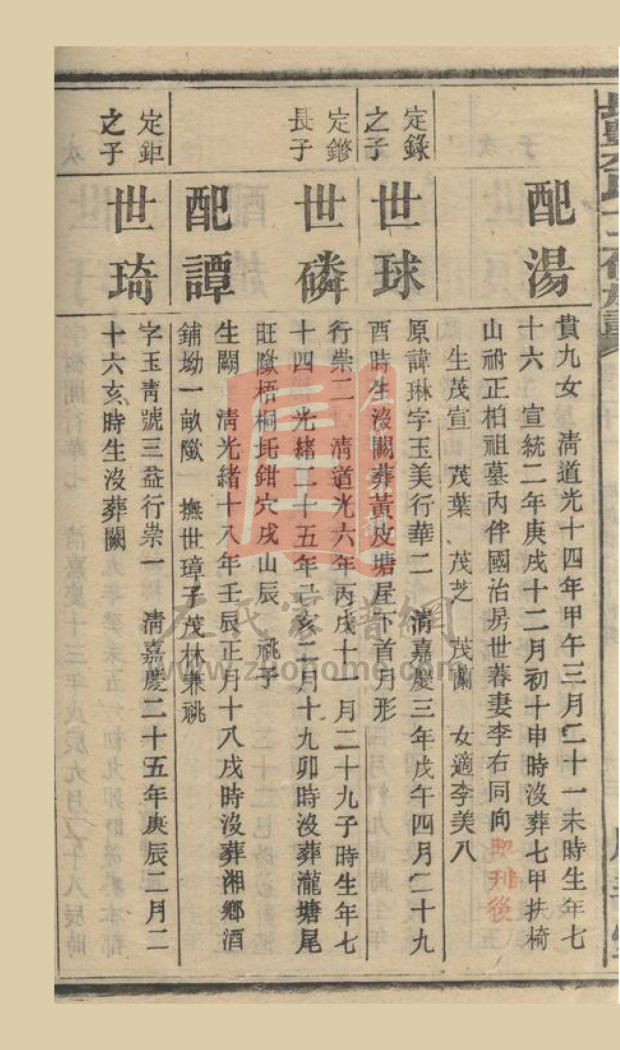 配湯
貴九女　清道光十四年甲午三月二十一未時生年七
十六　宣統二年庚戌十二月初十申時沒葬七甲扶椅
山祔正柏祖墓內伴國治房世暮妻李右同向
生茂宣　茂葉　茂芝　茂蘭　女適李美八
定錄
之子
世球
原諱琳字玉美行華二　清嘉慶三年戊午四月二十九
酉時生沒闕葬黃皮塘屋下首月形
定鏘
長子
世磷
行崇二　清道光六年丙戌十一月二十九子時生年七
十四　光緒二十五年己亥二月十九卯時沒葬瀧塘尾
旺隞梧桐圫鉗穴戌山辰　祧子
配譚
生闕　清光緒十八年壬辰正月十八戌時沒葬湘鄉酒
鋪坳一畝隞　撫世璋子茂林兼祧
定鉅
之子
世琦
字玉靑號三益行崇一　淸嘉慶二十五年庚辰二月二
十六亥時生沒葬闕
左氏家譜網
www.zuonome.com